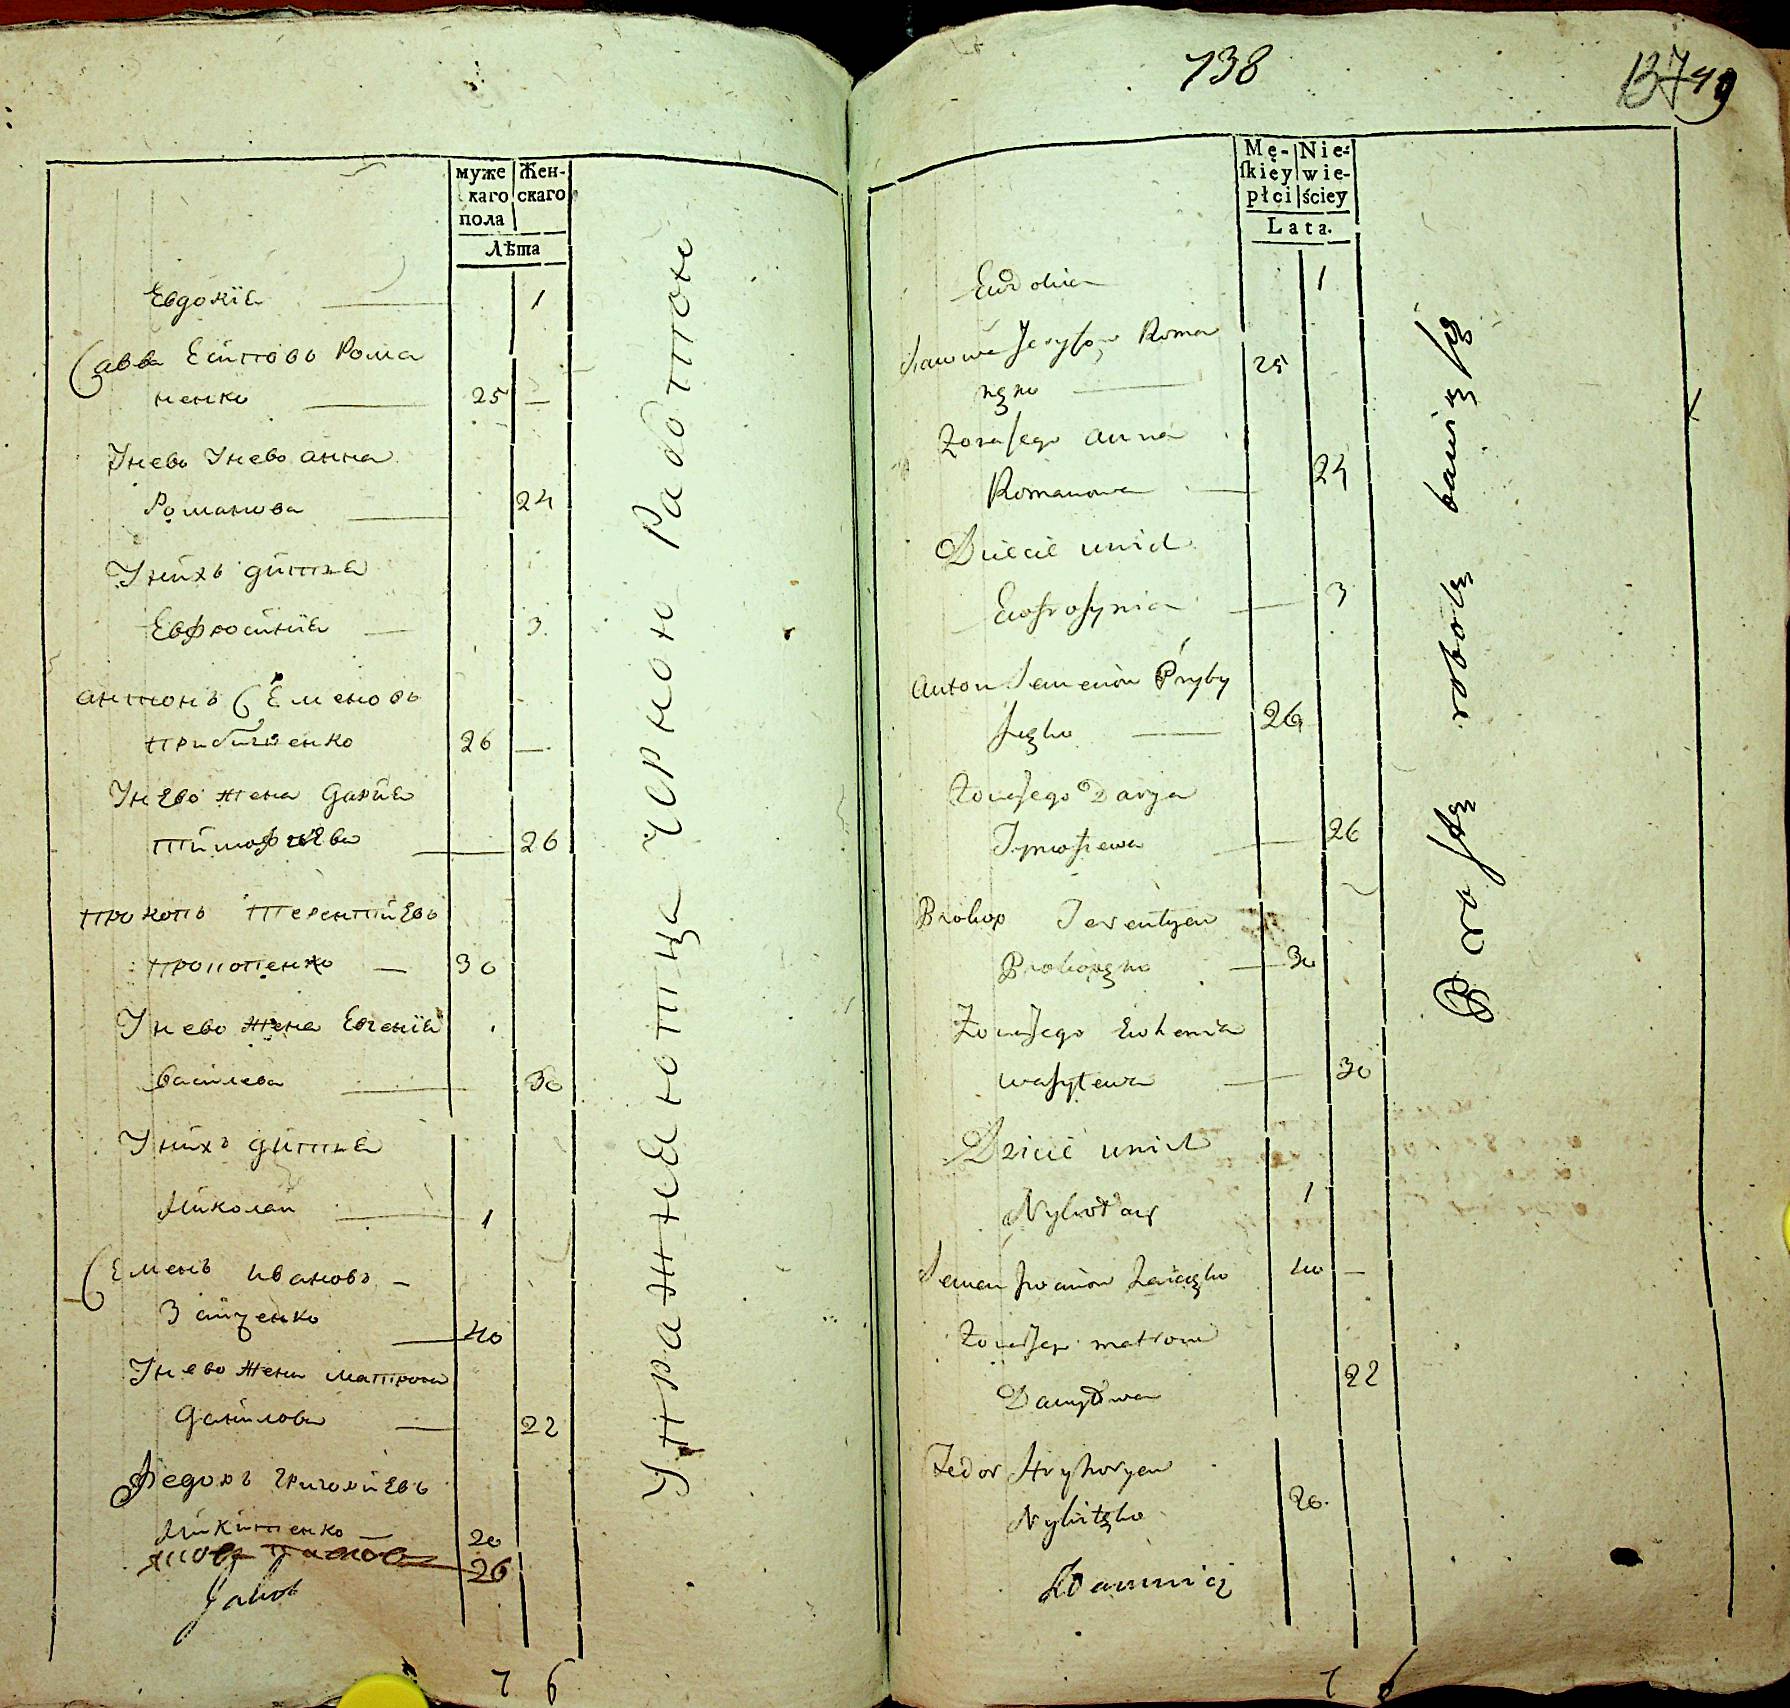 муже
каго
пола
Жен-
скаго
Лѣта
Евдокїа 1
Савва Еѵповъ Рома
ненко 25 —
У нево анна
Романова 24
У нихъ дитѧ
Евфросинїа 3
антонъ Семеновъ
26 —
У нево жена Дарїа
Тимофѣева 26
Прокопъ Терентїевъ
Прокопенко — 30
У нево жена Евгенїа
Василева 30
У нихъ дитѧ
Миколай 1
Семенъ Ивановъ —
Заиченко 40
У нево жена матрона
Данилова 22
Федоръ Григорїевъ
Микитенко — 20
26
Jakob
7 6
Упражнѧютца черною Работою
138
137
49
Mę-
skiey
płci
Nie-
wie-
ściey
Lata.
Eudokia 1
Roma
nęko 25
Żona Jego anna
Romanowa 24
Dziecie u nich
Eufrosynia 3
Anton Semenow Pryby
szęko 26
Żona Jego Darya
Tymofiewa 26
Prokop Terentyew
Prokopęko 30
Żona Jego Euhenia
wasylewa 30
Dziecie u nich
Mykołay 1
Semen Iwanow Zaięczko 40 —
Żona Jego matrona
Daniłowa 22
Fedor Hryhoryew
Mykitęko 20
7 6
Prostą robotą bawią się